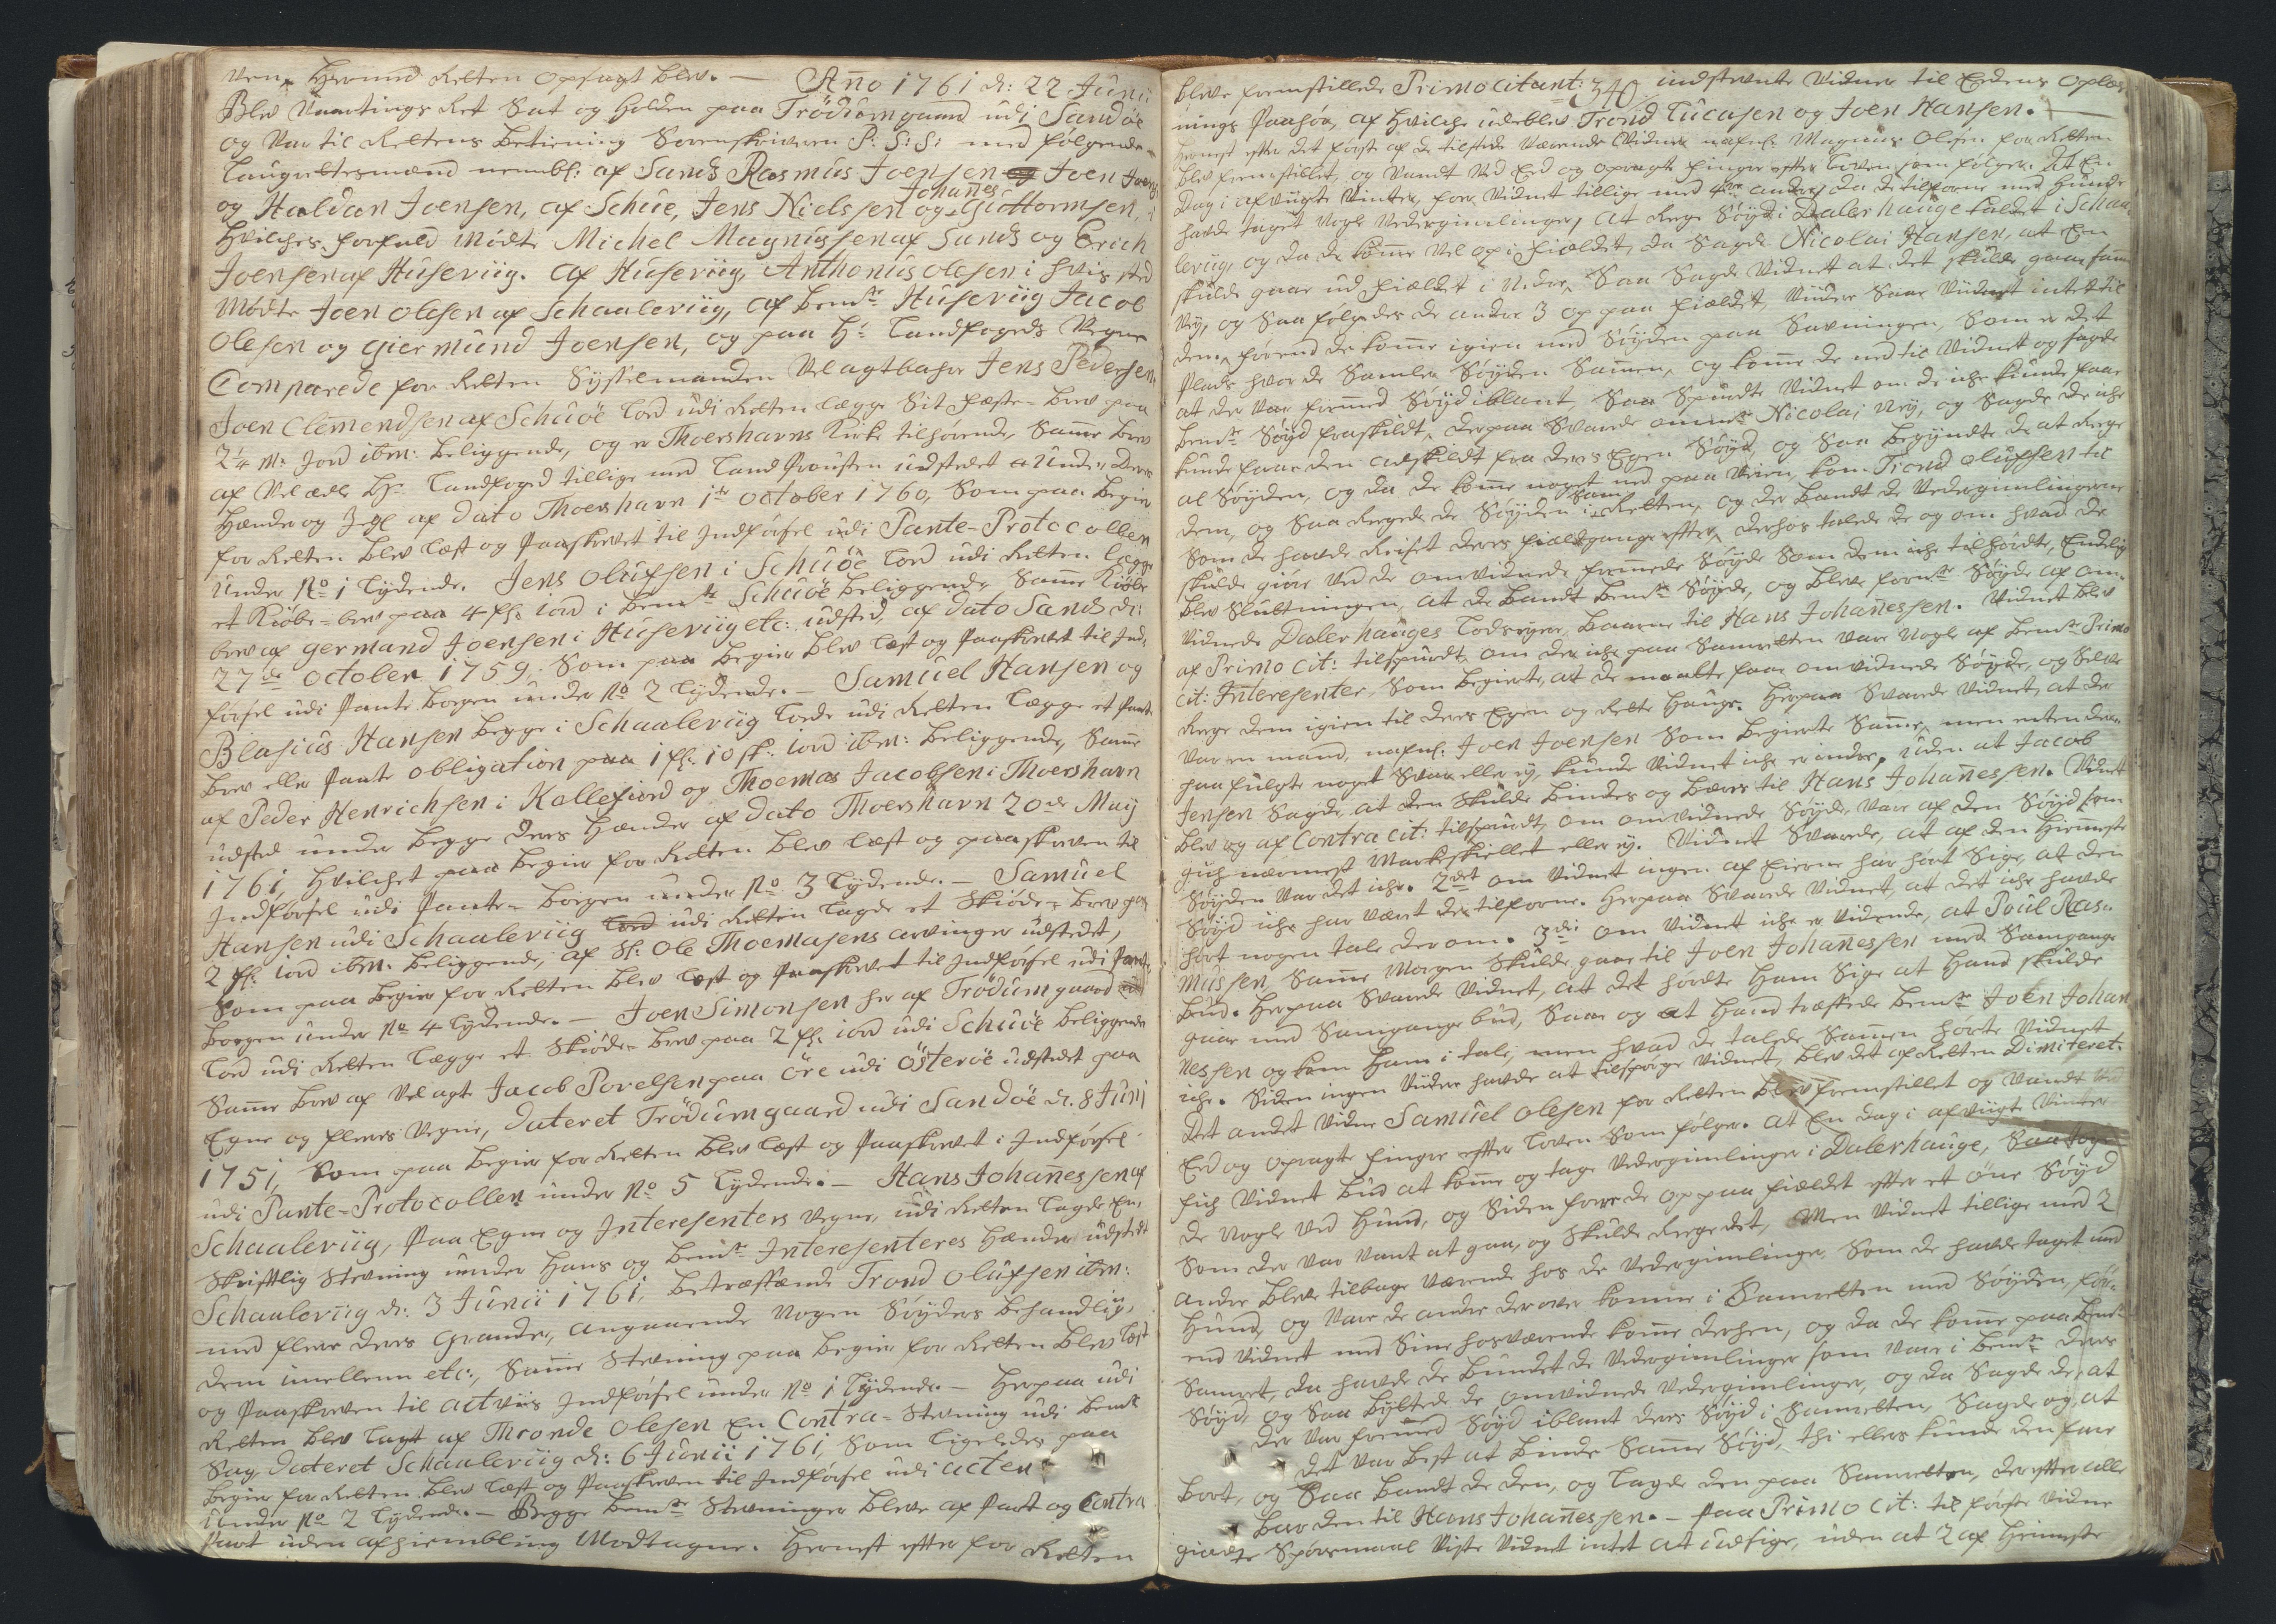 ven, Hermed Retten Opsagt blev. — Anno 1761 d: 22 Junii
Blev Vaartings Ret Sat og Holden paa Trödumgaard udi Sandöe
og Var til Rettens Betiening Sorenskriveren S: S: S: med følgende
Laugrettesmænd nembl: af Sands Rasmus Joensen og Joen Joens:
og Haldan Joensen, af Schue, Jens Nielssen og Johannes Guttormsen, i
Hvilches forfald Mødte Michel Magnussen af Sands og Erich
Joensen af Huseviig. Af Huseviig Anthonius Olesen i hvis sted
Mødte Joen Olesen af Schaaleviig, af bemte Huseviig Jacob
Olesen og Giermund Joensen, og paa Hr Landfogeds Vegne
Comparede for Retten Sysselmanden Velagtbahr Jens Pedersen,
Joen Clemendsen af Schuöe Lod udi Retten Lægge Sit Fæste-brev paa
2¼ M: Jord ibm: beliggende, og er Thoershavns Kirke tilhørende, Samme brev
af Vel ædle Hr Landfoged tillige med Land Prousten udstedet under Deres
Hænder og Zegl af dato Thoershavn 1te October 1760, Som paa Begier
for Retten blev Læst og Paaskrevet til Indførsel udi Pante-Protocollen
under No 1 Lydende. Jens Olufsen i Schuöe Lod udi Retten Lægge
et Kiøbe-brev paa 4 fl: iord i bemte Schuöe beliggende Samme Kiøbe
brev af Germand Joensen i Huseviig etc: udsted, af dato Sands d:
27de October 1759. Som paa Begier blev Læst og Paaskrevet til Ind-
førsel udi Pante bogen under No 2 Lydende. — Samuel Hansen og
Blasius Hansen begge i Schaaleviig Lode udi Retten Lægge et Pante
brev eller Pante Obligation paa 1 fl: 10 sk: iord ibm: beliggende, Samme
af Peder Henrichsen i Kollefiord og Thoemas Jacobsen i Thoershavn
udsted under begge Deres Hænder af dato Thoershavn 20de Maij
1761, Hvilchet paa Begier for Retten blev Læst og paaskreven til
Indførsel udi Pante-bogen under No 3 Lydende. — Samuel
Hansen udi Schaaleviig Lod udi Retten Lagde et Skiøde-brev paa
2 fl: iord ibm: beliggende, af Sl: Ole Thoemasens arvinger udstedet,
Som paa begier for Retten blev Læst og Paaskrevet til Indførsel udi Pante-
bogen under No 4 Lydende. — Joen Simonsen her af Trödumgaard
Lod udi Retten Lægge et Skiøde-brev paa 2 fl: iord udi Schuöe beliggende
Samme brev af Vel agt Jacob Povelsen paa Öre udi Österöe udstedet paa
Egne og fleres Vegne, Dateret Trödumgaard udi Sandöe d. 8 Junj
1751, Som paa begier for Retten blev Læst og Paaskrevet i Indførsel
udi Pante-Protocollen under No 5 Lydende. — Hans Johannessen af
Schaaleviig, Paa Egne og Interesenters Vegne, udi Retten Lagde En
Skriftlig Stevning under Hans og bemte Interesenteres Hænder udstedt
Schaaleviig d: 3 Junii 1761, betræffende Trond Olufsen ibm:
med flere deres Grander, angaaende Nogen Søyders behandling,
dem imellem etc:, Samme Stevning paa begier for Retten blev Læst
og Paaskreven til actviis Indførsel under No 1 Lydende. — Herpaa udi
Retten blev Lagt af Thronde Olesen En Contra-Stevning udi bemte
Sag, Dateret Schaaleviig d: 6 Junii 1761, Som Ligeledes paa
begier for Retten blev Læst og Paaskreven til Indførsel udi Acten
under No 2 Lydende. — Begge bemte Stevninger bleve af Part og Contra
Part uden afhiembling Modtagne. Hernest efter for Retten
340
bleve fremstillede Primo citant: indstevnte Vidner til Eedens Oplæs-
nings Paahør, af Hvilche udeblev Trond Lucasen og Joen Hansen. —
Hernest efter det første af de tilstede Værende Vidner nafnl: Magnus Olesen for Retten
blev fremstillet, og Vandt Ved Eed og opragte finger efter Loven som følger. At En
Dag i afvigte Vinter, for Vidnet tillige med 4re andre, da de tilforne med Hunde
havde taget Nogle Vedergimlinger, at Rege Søyd i Dalerhauge kaldet i Schaa-
leviig, og da de komme Vel op i fieldet, da Sagde Nicolai Hansen, at En
skulde gaae ud fieldet i Neder, Saa Sagde Vidnet at det skulde gaae samme
Vej, og Saa følgedes de andre 3 op paa fieldet, Viidere Saae Viidnet intet til
dem, førend de komme igien med Søyden paa Savningen, Som er det
Plads hvor de Samler Søyden Sammen, og komme de ned til Vidnet og sagde
at der var fremmed Søyd iblant, Saa Spurdte Vidnet om de iche kunde faae
bemte Søyd fraskildt, derpaa Svarede ommte Nicolaj Nej, og Sagde de iche
kunde faae den adskildt fra deres Egen Søyd, og Saa begyndte de at Rege
al Søyden, og da de komme noget ned paa Veien kom Trond Olufsen til
dem, og Saa Regede de Søyden i Sam Retten, og der bandt de Vedergimlingerne
Som de havde Reiset deres fieldgange efter, derhos talede de og om hvad de
skulde giøre Ved de omvidnede fremmede Søyde Som dem iche tilhørdte, Endelig
blev Slutningen, at de bandt bemte Søyde, og bleve fornte Søyde af om-
vidnede Dalerhauges Lodseyere baarne til Hans Johannessen. Vidnet blev
af Primo Cit: tilspurdt, om der iche paa Samretten vare Nogle af bemte Primo
cit: Interesenter, Som begierte, at de maatte faae omvidnede Søyde, og Selve
Rege dem igien til deres Egen og Rette Hauge. Herpaa Svarede Vidnet, at der
Var en mand, nafnl: Joen Joensen Som begierte Samme, men enten der-
paa fulgte noget Svar eller ej kunde Vidnet iche erindre, uden at Jacob
Jensen Sagde, at den Skulde bindes og bæres til Hans Johannessen. Vidnet
blev og af Contra cit: tilspurdt, om omvidnede Søyde, Vare af den Søyd som
gich nærmest Markskiellet eller ej. Vidnet Svarede, at af den Hiemmeste
Søyden Var det iche. 2det om Vidnet ingen af Eierne har hørt Sige, at den
Søyd iche har været der tilforne. Herpaa Svarede Vidnet, at det iche havde
hørt nogen tale derom. 3di om Vidnet iche er vidende, at Poul Ras-
mussen, Samme Morgen Skulde gaae til Joen Johannessen med Samgange
bud. Herpaa Svarede Vidnet, at det hørdte Ham Sige at Hand skulde
gaae med Samgange bud, Saa og at Hand træffede bemte Joen Johan
nessen og kom Ham i tale, men hvad de talede Sammen hørte Vidnet
iche. Siden ingen Viidere havde at tilspørge Vidnet, blev det af Retten Dimiteret.
Det andet Vidne Samuel Olesen for Retten blev fremstillet og Vandt Ved
Eed og opragte finger efter Loven Som følger. At En dag i afvigte Vinter
fich Vidnet bud at komme og tage Vedergimlinger i Dalerhauge, Saa toge
de Nogle Ved Hund, og Siden fore de op paa fieldet efter et Øne Søyd
Som der var Vant at gaae, og Skulde Rege det, Men Vidnet tillige med 2
andre bleve tilbage Værende hos de Vedergimlinger, Som de havde taget med
Hund, og Vare de andre derover komne i Samretten med Søyden, før-
end Vidnet med Sine hosværende komme derhen, og da de komme paa bemte
Samret, da havde de bundet de Vedergimlinger som vare i bemte deres
Søyd, og Saa byltede de omvidnede Vedergimlinger, og da Sagde de, at
der Var fremmed Søyd iblant deres Søyd i Samretten, Sagde og, at
det var best at binde Samme Søyd, thi ellers kunde den fare
bort, og Saa bandt de den, og Lagde den paa Samretten, derefter alle
bar den til Hans Johannessen. — Paa Primo Cit: til første Vidne
giordte Spørsmaal Viste Vidnet intet at udsige, uden at 2 af Hiemmeste